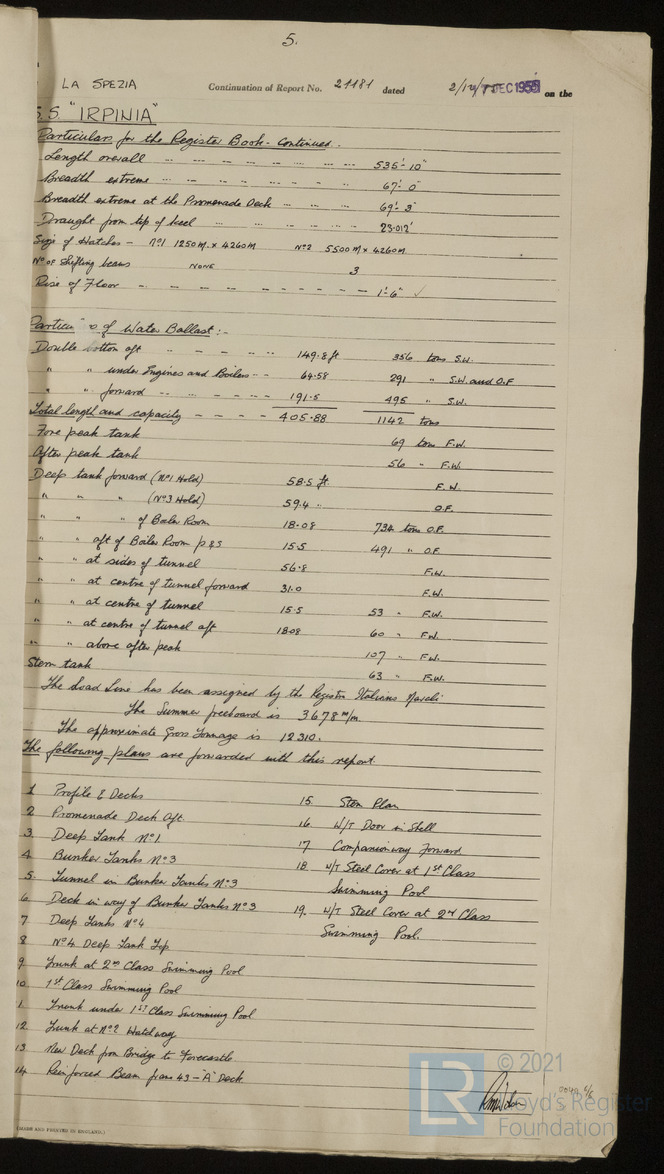 5.
LA SPEZIA Continuation of Report No. 21181 dated 2/12/ 7 DEC 1955 on the
S.S. "IRPINIA"
Particulars for the Register Book - Continued.
Length overall 535'- 10"
Breadth extreme 67'- 0"
Breadth extreme at the Promenade Deck 69'- 3"
Draught from top of keel 23.012'
Size of Hatches - No1 1250 M. x 4260 M No2 5500 M x 4260 M.
No OF Shifting beams NONE 3
Rise of Floor 1'- 6" ✓
Particu s of Water Ballast :-
Double bottom aft 149.8 ft 356 tons S.W.
" " under Engines and Boilers 64.58 291 " S.W. and O.F
" " forward 191.5 495 " S.W.
Total length and capacity 405.88 1142 tons
Fore peak tank 69 tons F.W.
After peak tank 56 " F.W.
Deep tank forward (No1 Hold) 58.5 ft. F.W.
" " " (No3 Hold) 59.4 " O.F.
" " " of Boiler Room 18.08 734 tons O.F.
" " aft of Boiler Room p & s 15.5 491 " O.F.
" " at sides of tunnel 56.8 F.W.
" " at centre of tunnel forward 31.0 F.W.
" " at centre of tunnel 15.5 53 " F.W.
" " at centre of tunnel aft 18.08 60 " F.W.
" " above after peak 107 " F.W.
Stern tank 63 " F.W.
The Load Line has been assigned by the Registro Italiano Navale
The Summer freeboard is 3678 m/m.
The approximate Gross Tonnage is 12310.
The following plans are forwarded with this report.
1 Profile & Decks
2 Promenade Deck Aft.
3. Deep Tank No1
4. Bunker Tanks No3
5. Tunnel in Bunker Tanks No3
6. Deck in way of Bunker Tanks No3
7 Deep Tanks No4
8 No4 Deep Tank Top
9. Trunk at 2nd Class Swimming Pool
10 1st Class Swimming Pool
11. Trunk under 1st Class Swimming Pool
12. Trunk at No2 Hatchway
13. New Deck from Bridge to Forecastle
14. Reinforced Beam frame 43 - "A" Deck
15. Stem Plan
16. W/T Door in Shell
17 Companionway Forward
18. W/T Steel Cover at 1st Class
Swimming Pool
19. W/T Steel Cover at 2nd Class
Swimming Pool.
(MADE AND PRINTED IN ENGLAND.)
© 2021
LR Lloyd's Register
Foundation